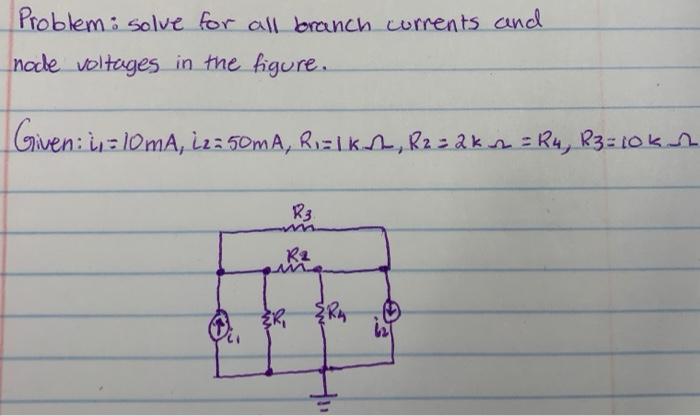 Problem: solve for all branch currents and
node voltages in the figure.
Given: i1=10mA, i2=50mA, R1=1kΩ, R2=2kΩ=R4, R3=10kΩ
R3
R2
i1
R1
R4
i2